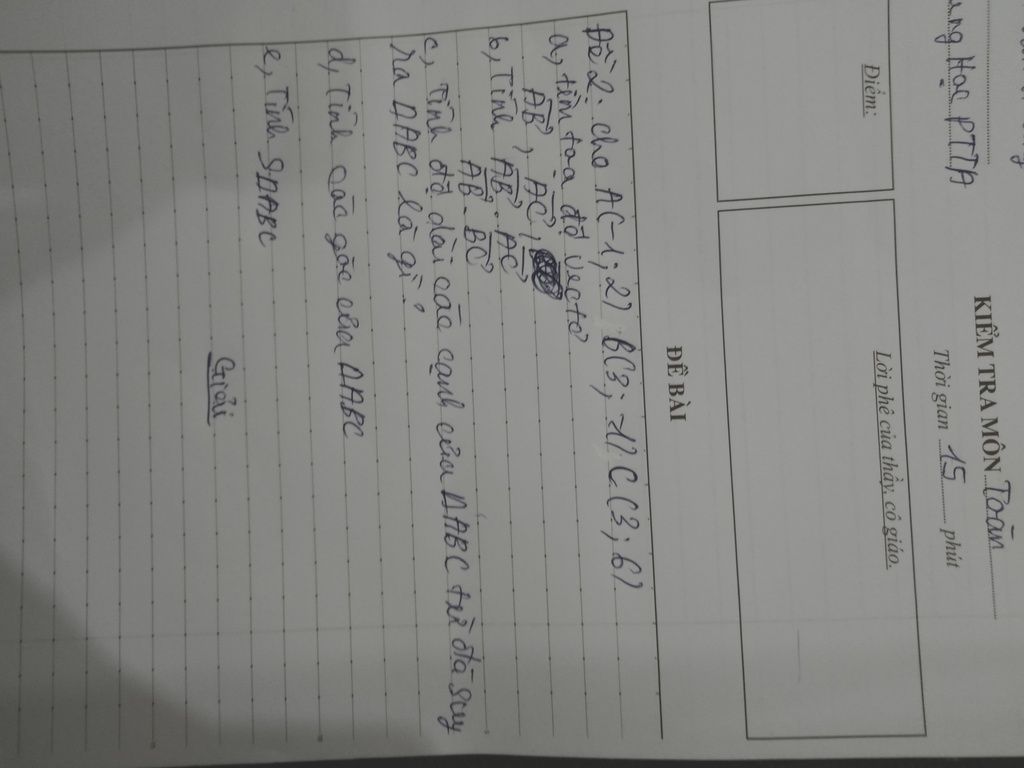 ang Học PTTA
KIỂM TRA MÔN Toán
Thời gian 15 phút
Điểm:
Lời phê của thầy, cô giáo.
ĐỀ BÀI
Đề 2. cho A(-1; 2) B(3; -1) C(3; 6)
a, tìm toạ độ vectơ
AB, AC,
b, Tính AB . AC
AB . BC
c, Tính độ dài các cạnh của ΔABC từ đó suy
ra ΔABC là gì?
d, Tính các góc của ΔABC
e, Tính SΔABC
Giải